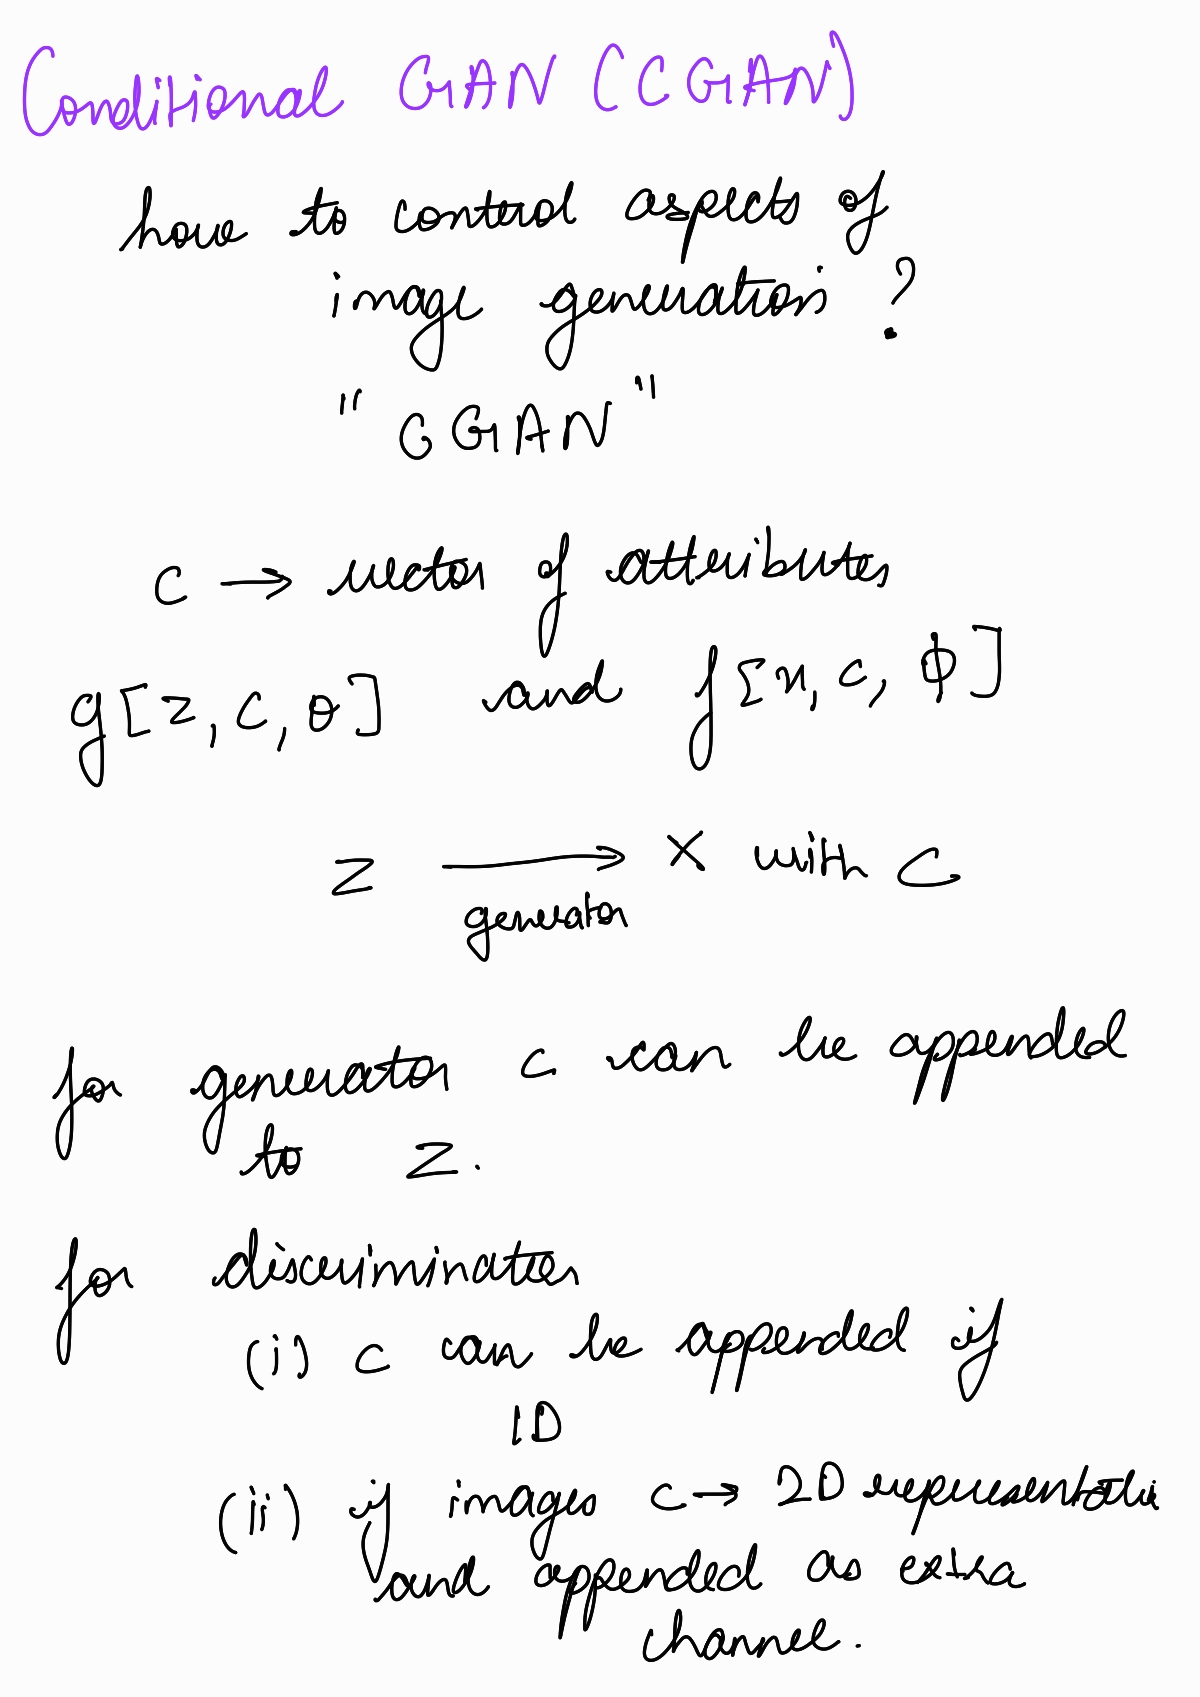 Conditional GAN (CGAN)
how to control aspects of
image generation ?
"CGAN"
c → vector of attributes
g[z, c, θ] and f[x, c, ϕ]
z → x with c
generator
for generator c can be appended
to z.
for discriminator
(i) c can be appended if
1D
(ii) if images c → 2D representation
and appended as extra
channel.